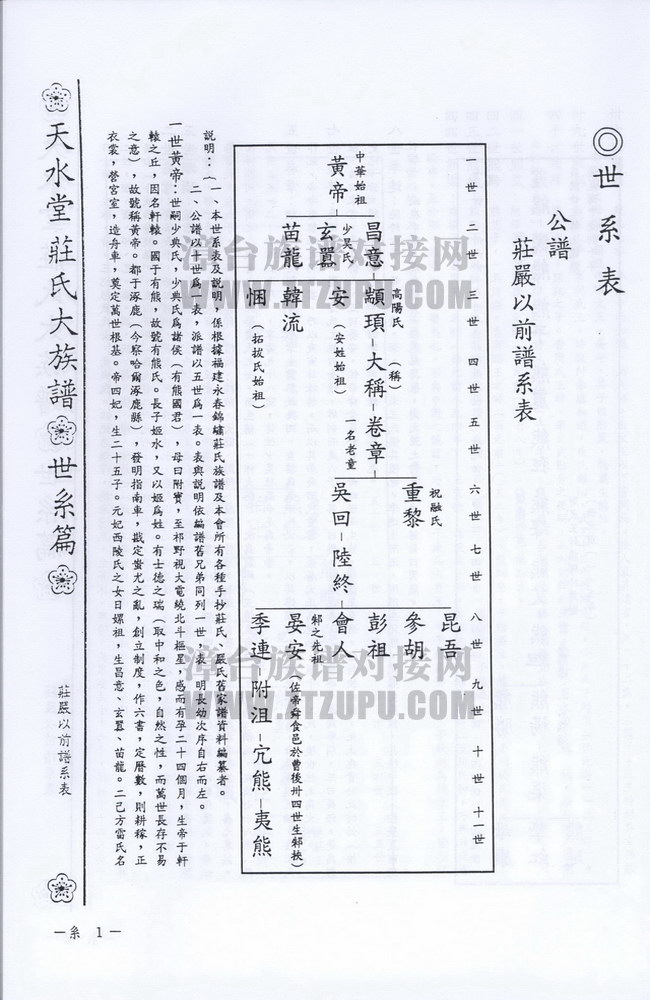 ◎世系表
公譜
莊嚴以前譜系表
一世 二世 三世 四世 五世 六世 七世 八世 九世 十世 十一世
中華始祖
黃帝
昌意
少昊氏
玄囂
苗龍
高陽氏
顓頊
安
(安姓始祖)
韓流
悃
(拓拔氏始祖)
(稱)
大稱
卷章
一名老童
祝融氏
重黎
吳回
陸終
昆吾
參胡
彭祖
會人
邾之先祖
晏安
(佐帝舜食邑於曹後卅四世生邾挾)
季連
附沮
穴熊
夷熊
說明：(一、本世系表及說明，係根據福建永春錦繡莊氏族譜及本會所有各種手抄莊氏、嚴氏舊家譜資料編纂者。
二、公譜以十一世爲一表，派譜以五世爲一表。表與說明依編譜舊兄弟同列一世，表明長幼次序自右而左。
一世黃帝：世嗣少典氏，少典氏爲諸侯（有熊國君），母曰附寶，至祁野視大電繞北斗樞星，感而有孕二十四個月，生帝于軒
轅之丘，因名軒轅。國于有熊，故號有熊氏。長子姬水，又以姬爲姓。有士德之瑞（取中和之色，自然之性，而萬世長存不易
之意），故號稱黃帝。都于涿鹿（今察哈爾涿鹿縣），發明指南車，戡定蚩尤之亂，創立制度，作六書，定曆數，則耕稼，正
衣裳，營宮室，造舟車，奠定萬世根基。帝四妃，生二十五子。元妃西陵氏之女曰嫘祖，生昌意、玄囂、苗龍。二己方雷氏名
天水堂 莊氏大族譜 世系篇
莊嚴以前譜系表
—系 1—
漳台族谱对接网
WWW.ZTZUPU.COM
漳台族谱对接网
WWW.ZTZUPU.COM